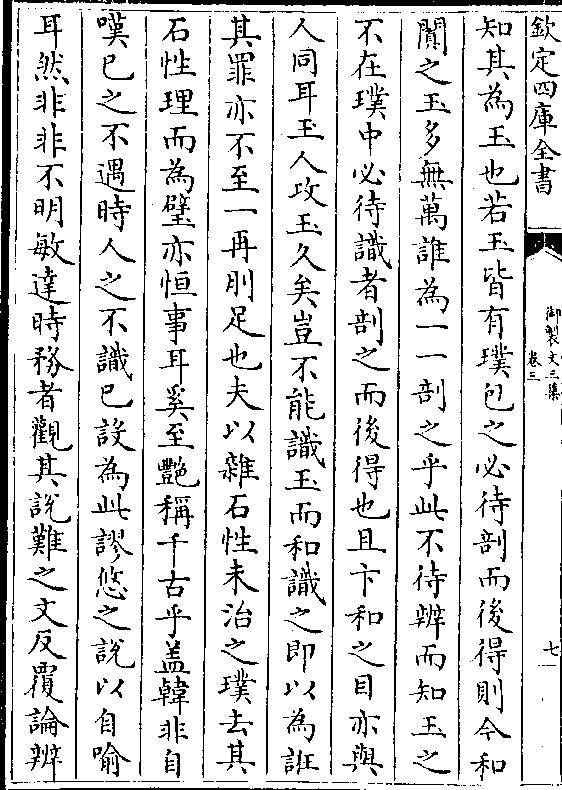 欽定四庫全書
御製文三集
卷三
七
知其為玉也若玉皆有璞包之必待剖而後得則今和
闐之玉多無萬誰為一一剖之乎此不待辨而知玉之
不在璞中必待識者剖之而後得也且卞和之目亦與
人同耳玉人攻玉久矣豈不能識玉而和識之即以為誑
其罪亦不至一再刖足也夫以雜石性未治之璞去其
石性理而為璧亦恒事耳奚至艷稱千古乎盖韓非自
嘆已之不遇時人之不識已設為此謬悠之說以自喻
耳然非非不明敏達時務者觀其說難之文反覆論辨